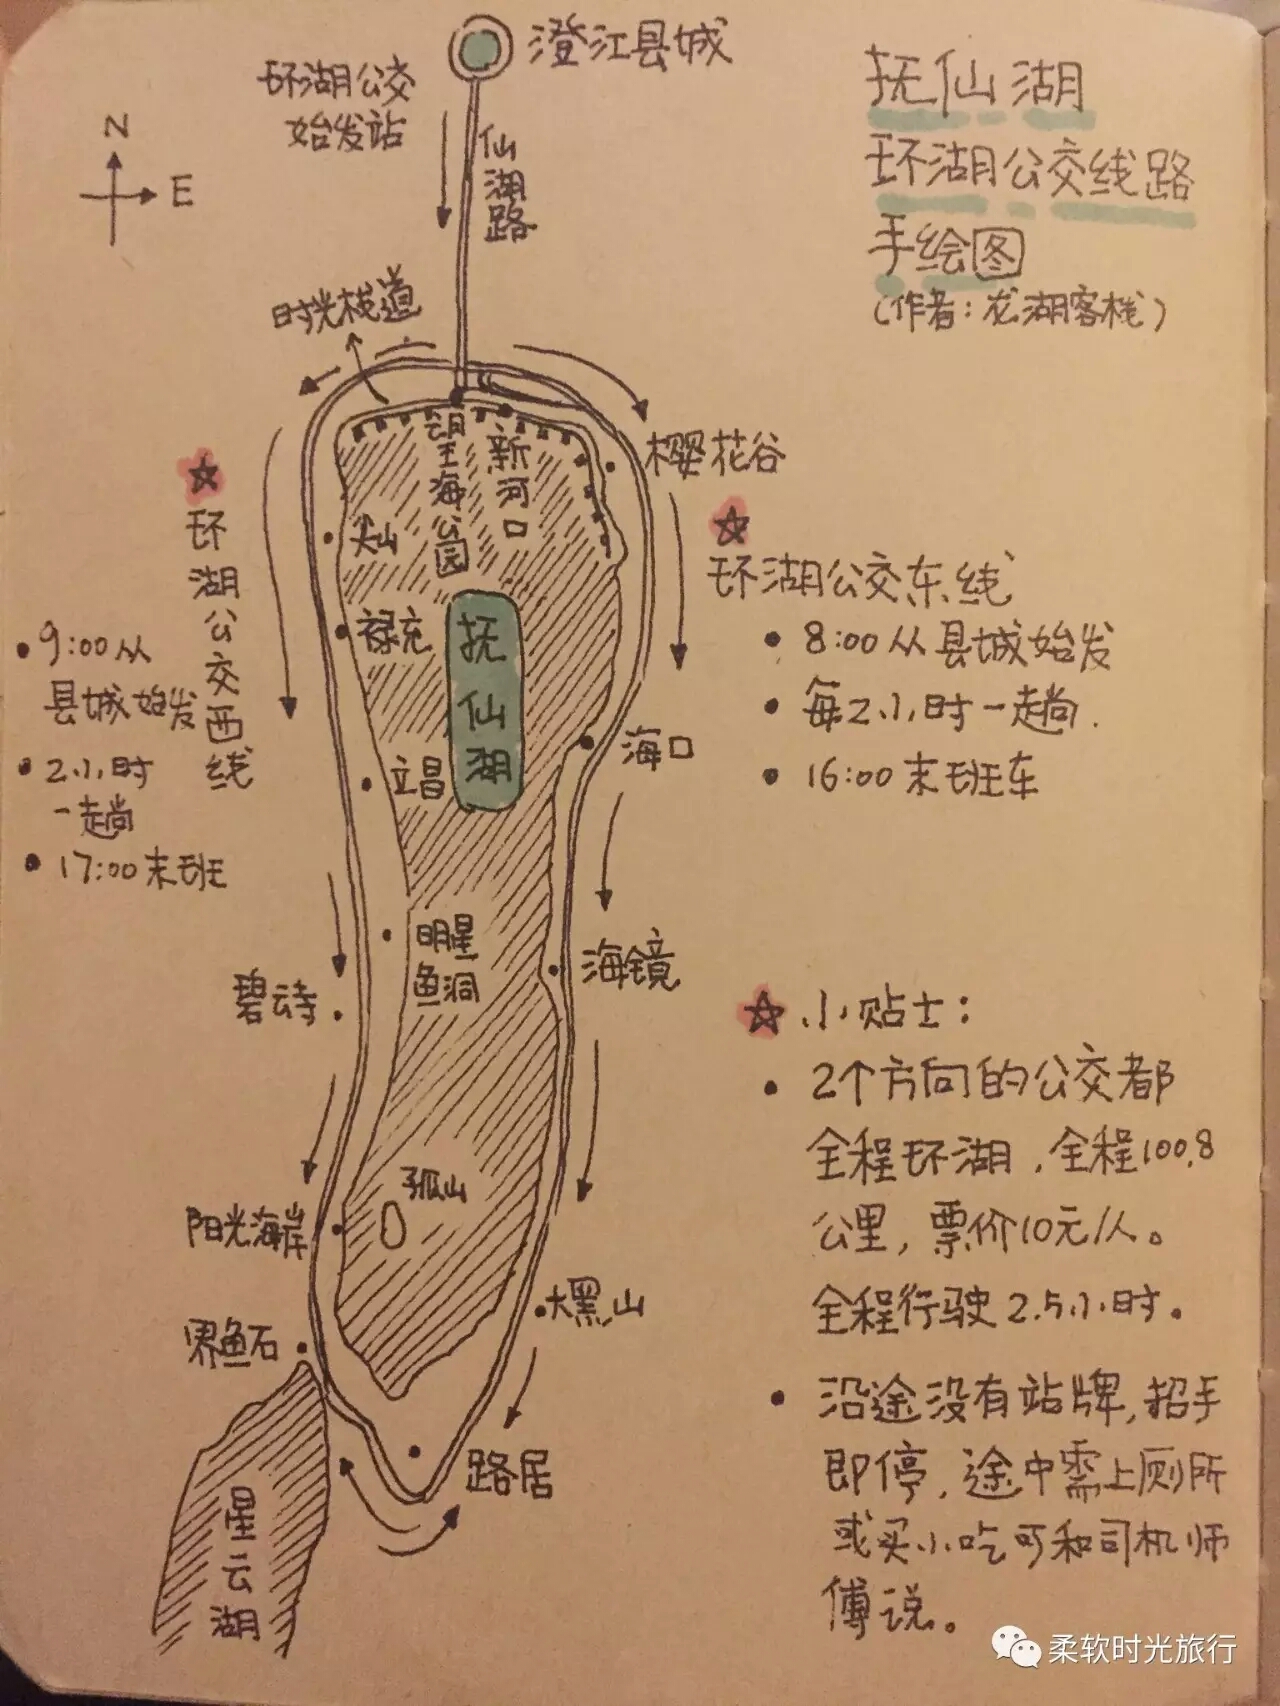 澄江县城
环湖公交
始发站
仙湖路
N
E
抚仙湖
环湖公交线路
手绘图
(作者:龙湖客栈)
时光栈道
望海公园
新河口
樱花谷
尖山
禄充
抚仙湖
立昌
海口
明星
鱼洞
海镜
碧云寺
孤山
阳光海岸
大黑山
界鱼石
路居
星云湖
环湖公交西线
• 9:00从
县城始发
• 2小时
一趟
• 17:00末班
环湖公交东线
• 8:00从县城始发
• 每2小时一趟.
• 16:00末班车
小贴士:
• 2个方向的公交都
全程环湖,全程100.8
公里,票价10元/人。
全程行驶2.5小时。
• 沿途没有站牌,招手
即停,途中需上厕所
或买小吃可和司机师
傅说。
柔软时光旅行